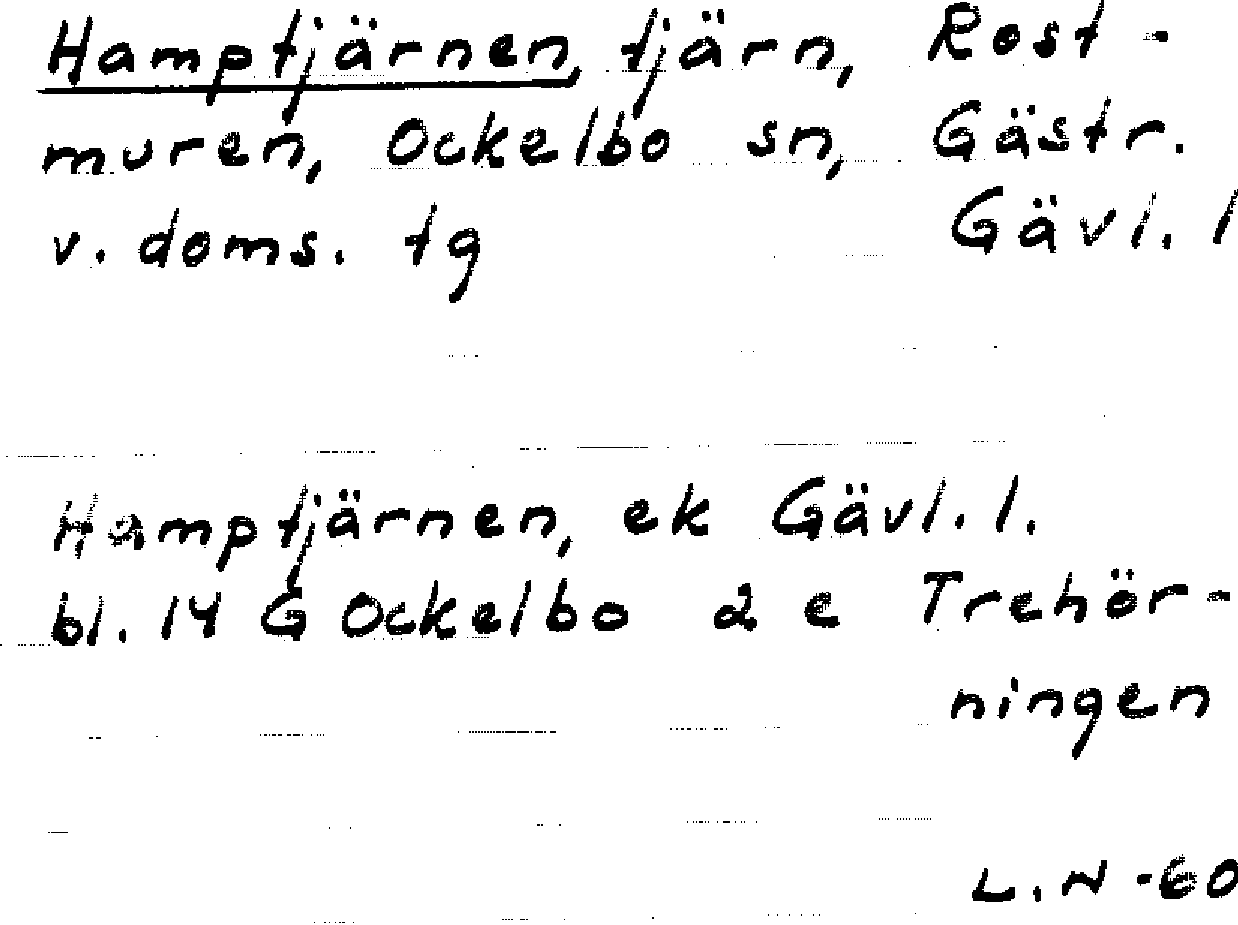 Hamptjärnen, tjärn, Rost-
muren, Ockelbo sn, Gästr.
v. doms. tg Gävl. l
Hamptjärnen, ek Gävl. l.
bl. 14 G Ockelbo 2 e Trehör-
ningen
L. N -60